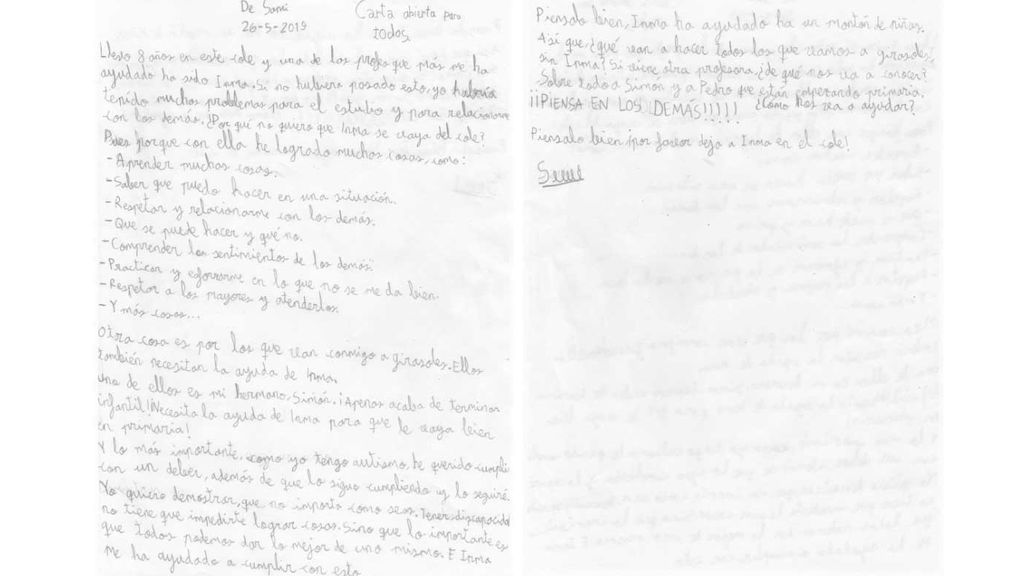 De Sami
26-5-2019
Carta abierta para
todos,
Llevo 8 años en este cole y una de las profes que más me ha
ayudado ha sido Inma. Si no hubiera pasado esto, yo habría
tenido muchos problemas para el estudio y para relacionarme
con los demás. ¿Por qué no quiero que Inma se vaya del cole?
Pues porque con ella he logrado muchas cosas, como:
-Aprender muchas cosas.
-Saber que puedo hacer en una situación.
-Respetar y relacionarme con los demás.
-Que se puede hacer y qué no.
-Comprender los sentimientos de los demás.
-Practicar y esforzarme en lo que no se me da bien.
-Respetar a los mayores y atenderlos.
-Y más cosas...
Otra cosa es por los que van conmigo a girasoles. Ellos
también necesitan la ayuda de Inma.
Uno de ellos es mi hermano, Simón. ¡Apenas acaba de terminar
infantil! ¡Necesita la ayuda de Inma para que le vaya bien
en primaria!
Y lo más importante, como yo tengo autismo, he querido cumplir
con un deber, además de que lo sigo cumpliendo y lo seguiré.
Yo quiero demostrar, que no importa como seas. Tener discapacidad
no tiene que impedirte lograr cosas. Sino que lo importante es
que todos podemos dar lo mejor de uno mismo. E Inma
me ha ayudado a cumplir con esto.
Piensalo bien, Inma ha ayudado ha un montón de niños.
Así que, ¿qué van a hacer todos los que vamos a girasoles,
sin Inma? Si viene otra profesora, ¿de qué nos va a conocer?
Sobre todo a Simón y a Pedro que están empezando primaria.
¿Cómo nos va a ayudar?
¡¡PIENSA EN LOS DEMÁS!!!!!
Piensalo bien ¡por favor deja a Inma en el cole!